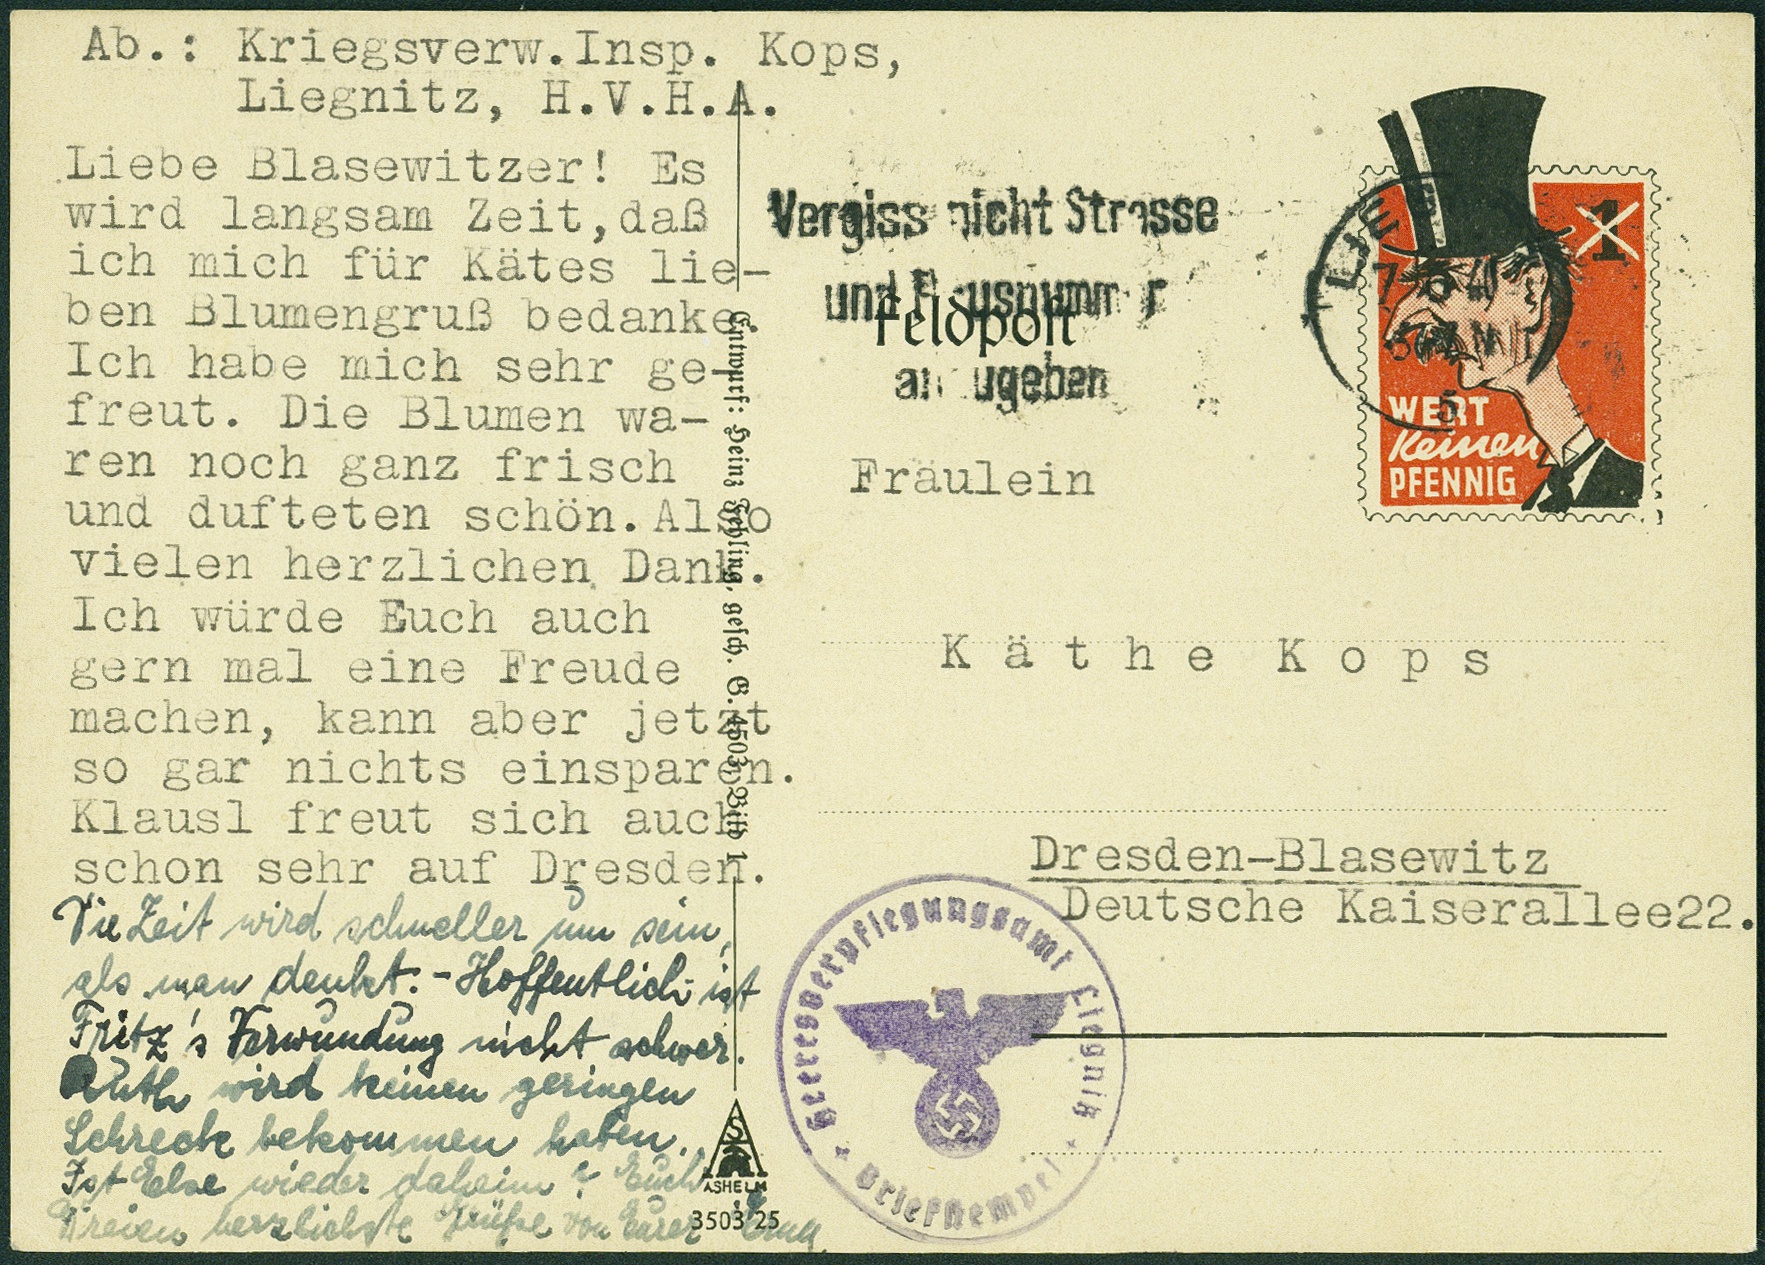 Ab.: Kriegsverw.Insp. Kops,
Liegnitz, H.V.H.A.
Liebe Blasewitzer! Es
wird langsam Zeit,daß
ich mich für Kätes lie-
ben Blumengruß bedanke.
Ich habe mich sehr ge-
freut. Die Blumen wa-
ren noch ganz frisch
und dufteten schön.Also
vielen herzlichen Dank.
Ich würde Euch auch
gern mal eine Freude
machen, kann aber jetzt
so gar nichts einsparen.
Klausl freut sich auch
schon sehr auf Dresden.
Die Zeit wird schneller um sein,
als man denkt. - Hoffentlich ist
Fritz's Verwundung nicht schwer.
Ruth wird keinen geringen
Schreck bekommen haben.
Ist Else wieder daheim? Euch
Dreien herzlichste Grüße von Eurer
Entwurf: Heinz Fehling, gesch. G. 4503, Bild 1
ASHELM
3503 25
Vergiss nicht Strasse
und Hausnummer
anzugeben
Feldpost
1
WERT
keinen
PFENNIG
Fräulein
Käthe Kops
Dresden-Blasewitz
Deutsche Kaiserallee22.
Heeresverpflegungsamt Liegnitz
Briefstempel